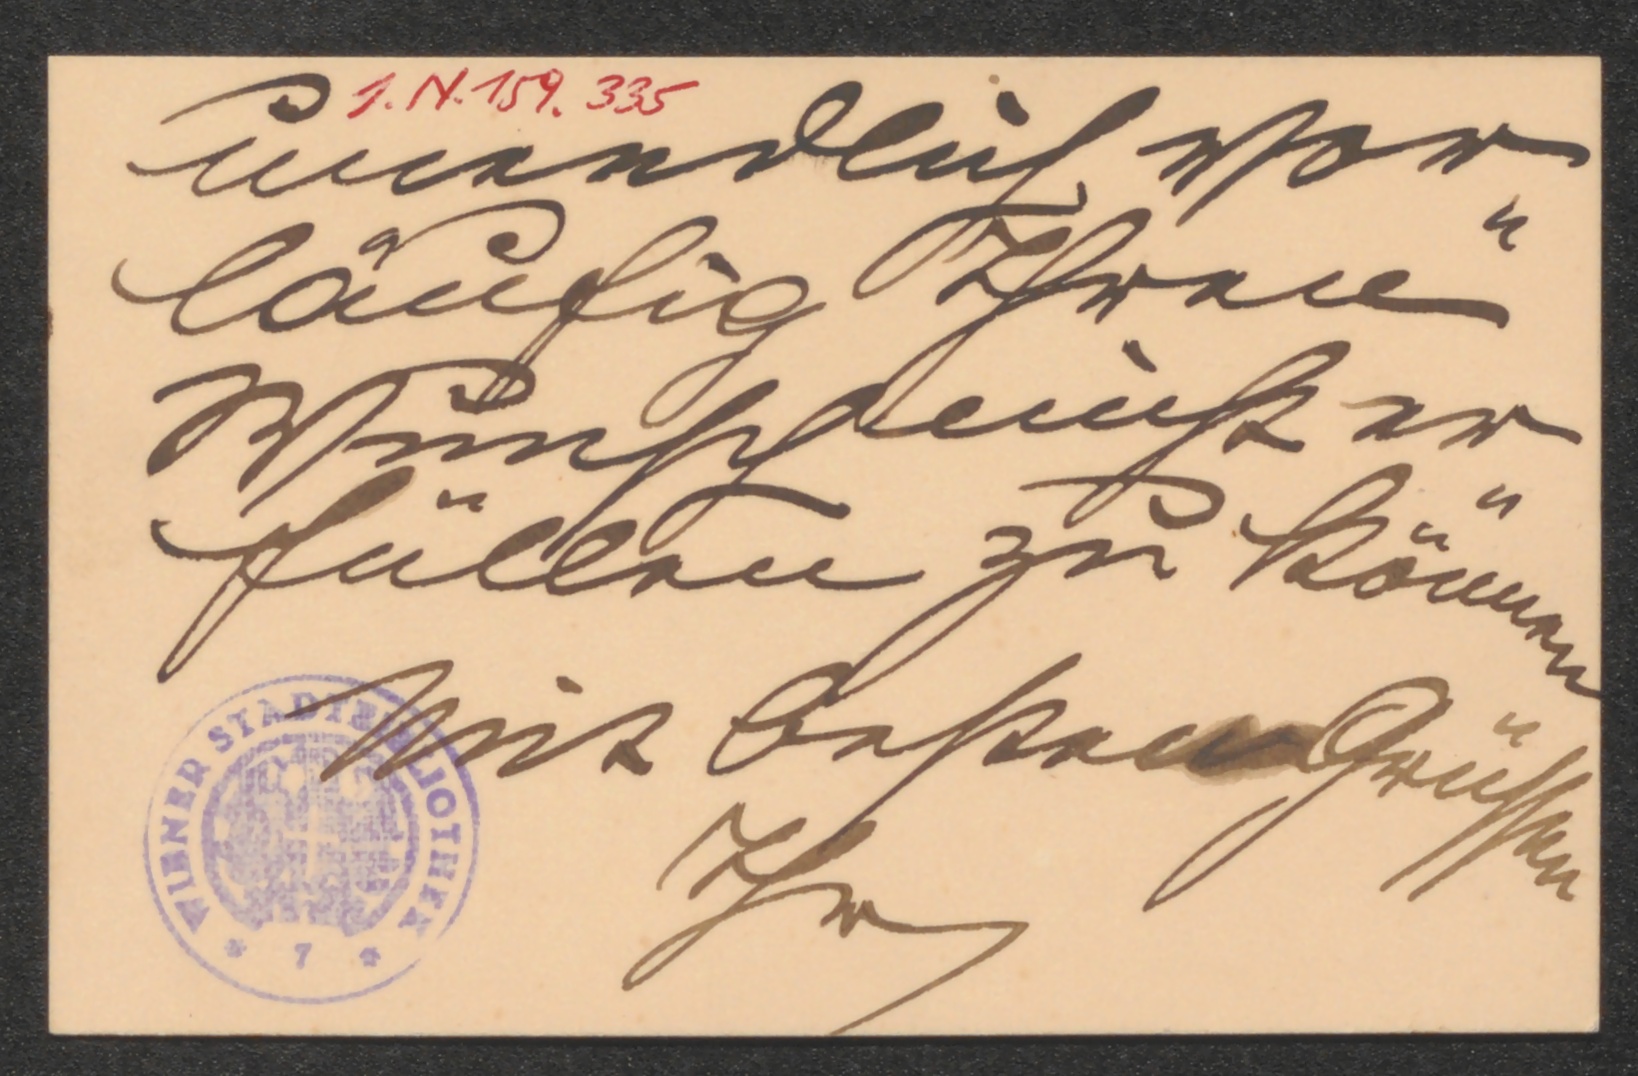 I.N. 159.335
unendlich vor-
läufig Ihren
Wunsch nicht er-
füllen zu können
Mit besten Grüssen
Ihr
WIENER STADTBIBLIOTHEK
* 7 *